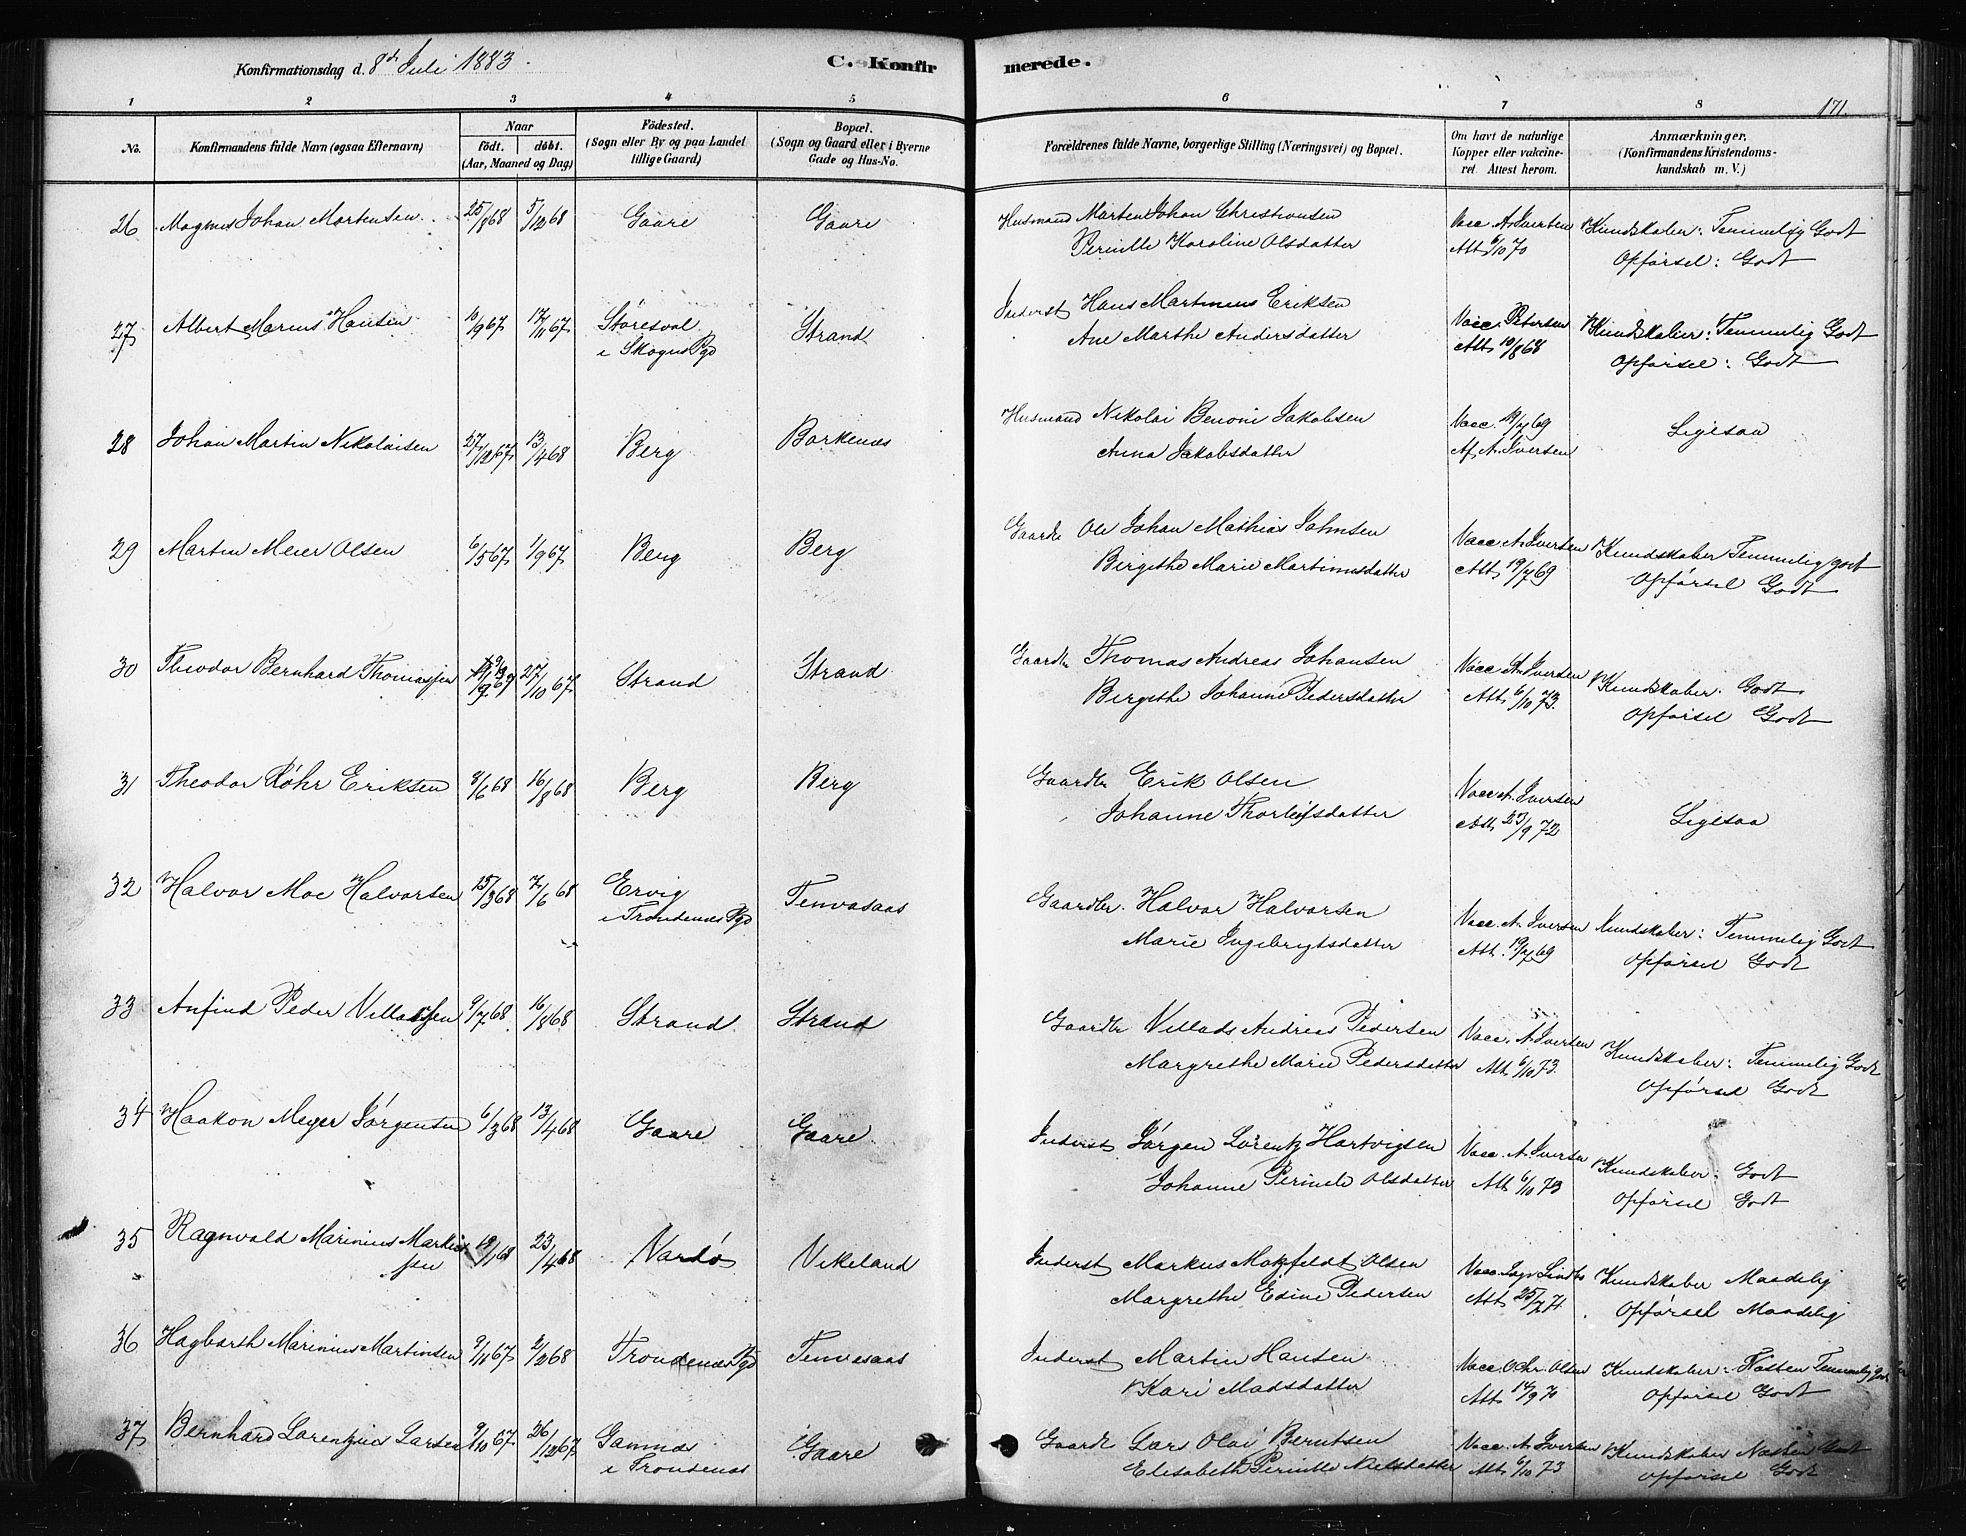 Konfirmationsdag d. 8de Juli 1883.
C. Konfirmerede.
171.
1 2 3 4 5 6 7 8
No.
Konfirmandens fulde Navn (ogsaa Efternavn)
Naar
født. døbt.
(Aar, Maaned og Dag)
Fødested.
(Sogn eller By og paa Landet
tillige Gaard)
Bopæl.
(Sogn og Gaard eller i Byerne
Gade og Hus-No.
Forældrenes fulde Navne, borgerlige Stilling (Næringsvei) og Bopæl.
Om havt de naturlige
Kopper eller vakcine-
ret. Attest herom.
Anmærkninger.
(Konfirmandens Kristendoms-
kundskab m. V.)
26 Magnus Johan Mortensen 25/8 68 5/12 68 Gaare Gaare Husmand Morten Johan Christiansen Vacc. A. Iversen Kundskaber: Temmelig Godt
Pernille Karoline Olsdatter Att. 6/10 70 Opførsel: Godt
27 Albert Marius Hansen 10/9 67 17/11 67 Støresval Strand Inderst Hans Martinus Eriksen Vacc. Petersen Kundskaber: Temmelig Godt
i Skogns Pgd Ane Marthe Andersdatter Att. 10/8 68 Opførsel: Godt
28 Johan Martin Nikolaisen 27/12 67 13/4 68 Berg Borkenæs Husmand Nikolai Benoni Jakobsen Vacc. 19/7 69 Ligesaa
Anna Jakobsdatter Af A. Iversen
29 Martin Meier Olsen 6/5 67 1/9 67 Berg Berg Gaardbr Ole Johan Mathias Johnsen Vacc A. Iversen Kundskaber Temmelig godt
Birgithe Marie Martinusdatter Att. 19/7 69 Opførsel Godt
30 Theodor Bernhard Thomassen 67 27/10 67 Strand Strand Gaardbr Thomas Andreas Johansen Vacc A. Iversen Kundskaber. Godt.
Birgithe Johanne Pedersdatter Att. 6/10 73. Opførsel Godt
31 Theodor Røhr Eriksen 8/6 68 16/8 68 Berg Berg Gaardbr Erik Olsen Vacc A. Iversen Ligesaa
Johanne Thorleifsdatter Att. 23/9 72
32 Halvor Moe Halvorsen 15/3 68 7/6 68 Ervig Tenvasaas Gaardbr. Halvor Halvorsen Vacc. A. Iversen Kundskaber: Temmelig Godt
i Trondenæs Pgd Marie Ingebrigtsdatter Att. 19/7 69 Opførsel Godt
33 Anfind Peder Villadsen 9/7 68 16/8 68 Strand Strand Gaardbr Villads Andreas Pedersen Vacc. A. Iversen Kundskaber: Temmelig Godt
Margrethe Marie Pedersdatter Att. 6/10 73. Opførsel Godt
34 Haakon Meyer Jørgensen 6/3 68 13/4 68 Gaare Gaare Inderst Jørgen Lorentz Hartvigsen Vacc. A. Iversen Kundskaber: Godt
Johanne Pernele Olsdatter Att 6/10 73 Opførsel Godt
35 Ragnvald Marinius Markus 19/1 68 23/4 68 Vardø Vikeland Inderst Markus Motzfeldt Olsen Vacc. Kundskaber Maadelig
sen Margrethe Edine Pedersen Att 25/7 71. Opførsel Maadelig
36 Hagbarth Marinius Martinsen 9/11 67 2/2 68 Trondenæs Pgd Tenvasaas Inderst Martin Hansen Vacc. O Chr. Olsen Kundskaber: Næsten Temmelig Godt
Kari Madsdatter Att. 14/9 70 Opførsel Godt
37 Bernhard Lorentzius Larsen 9/10 67 26/12 67 Gamnæs Gaare Gaardbr Lars Olai Berntsen Vacc. A. Iversen Kundskaber Næsten Godt
i Trondenæs Elisabeth Pernille Nielsdatter Att. 6/10 73 Opførsel Godt